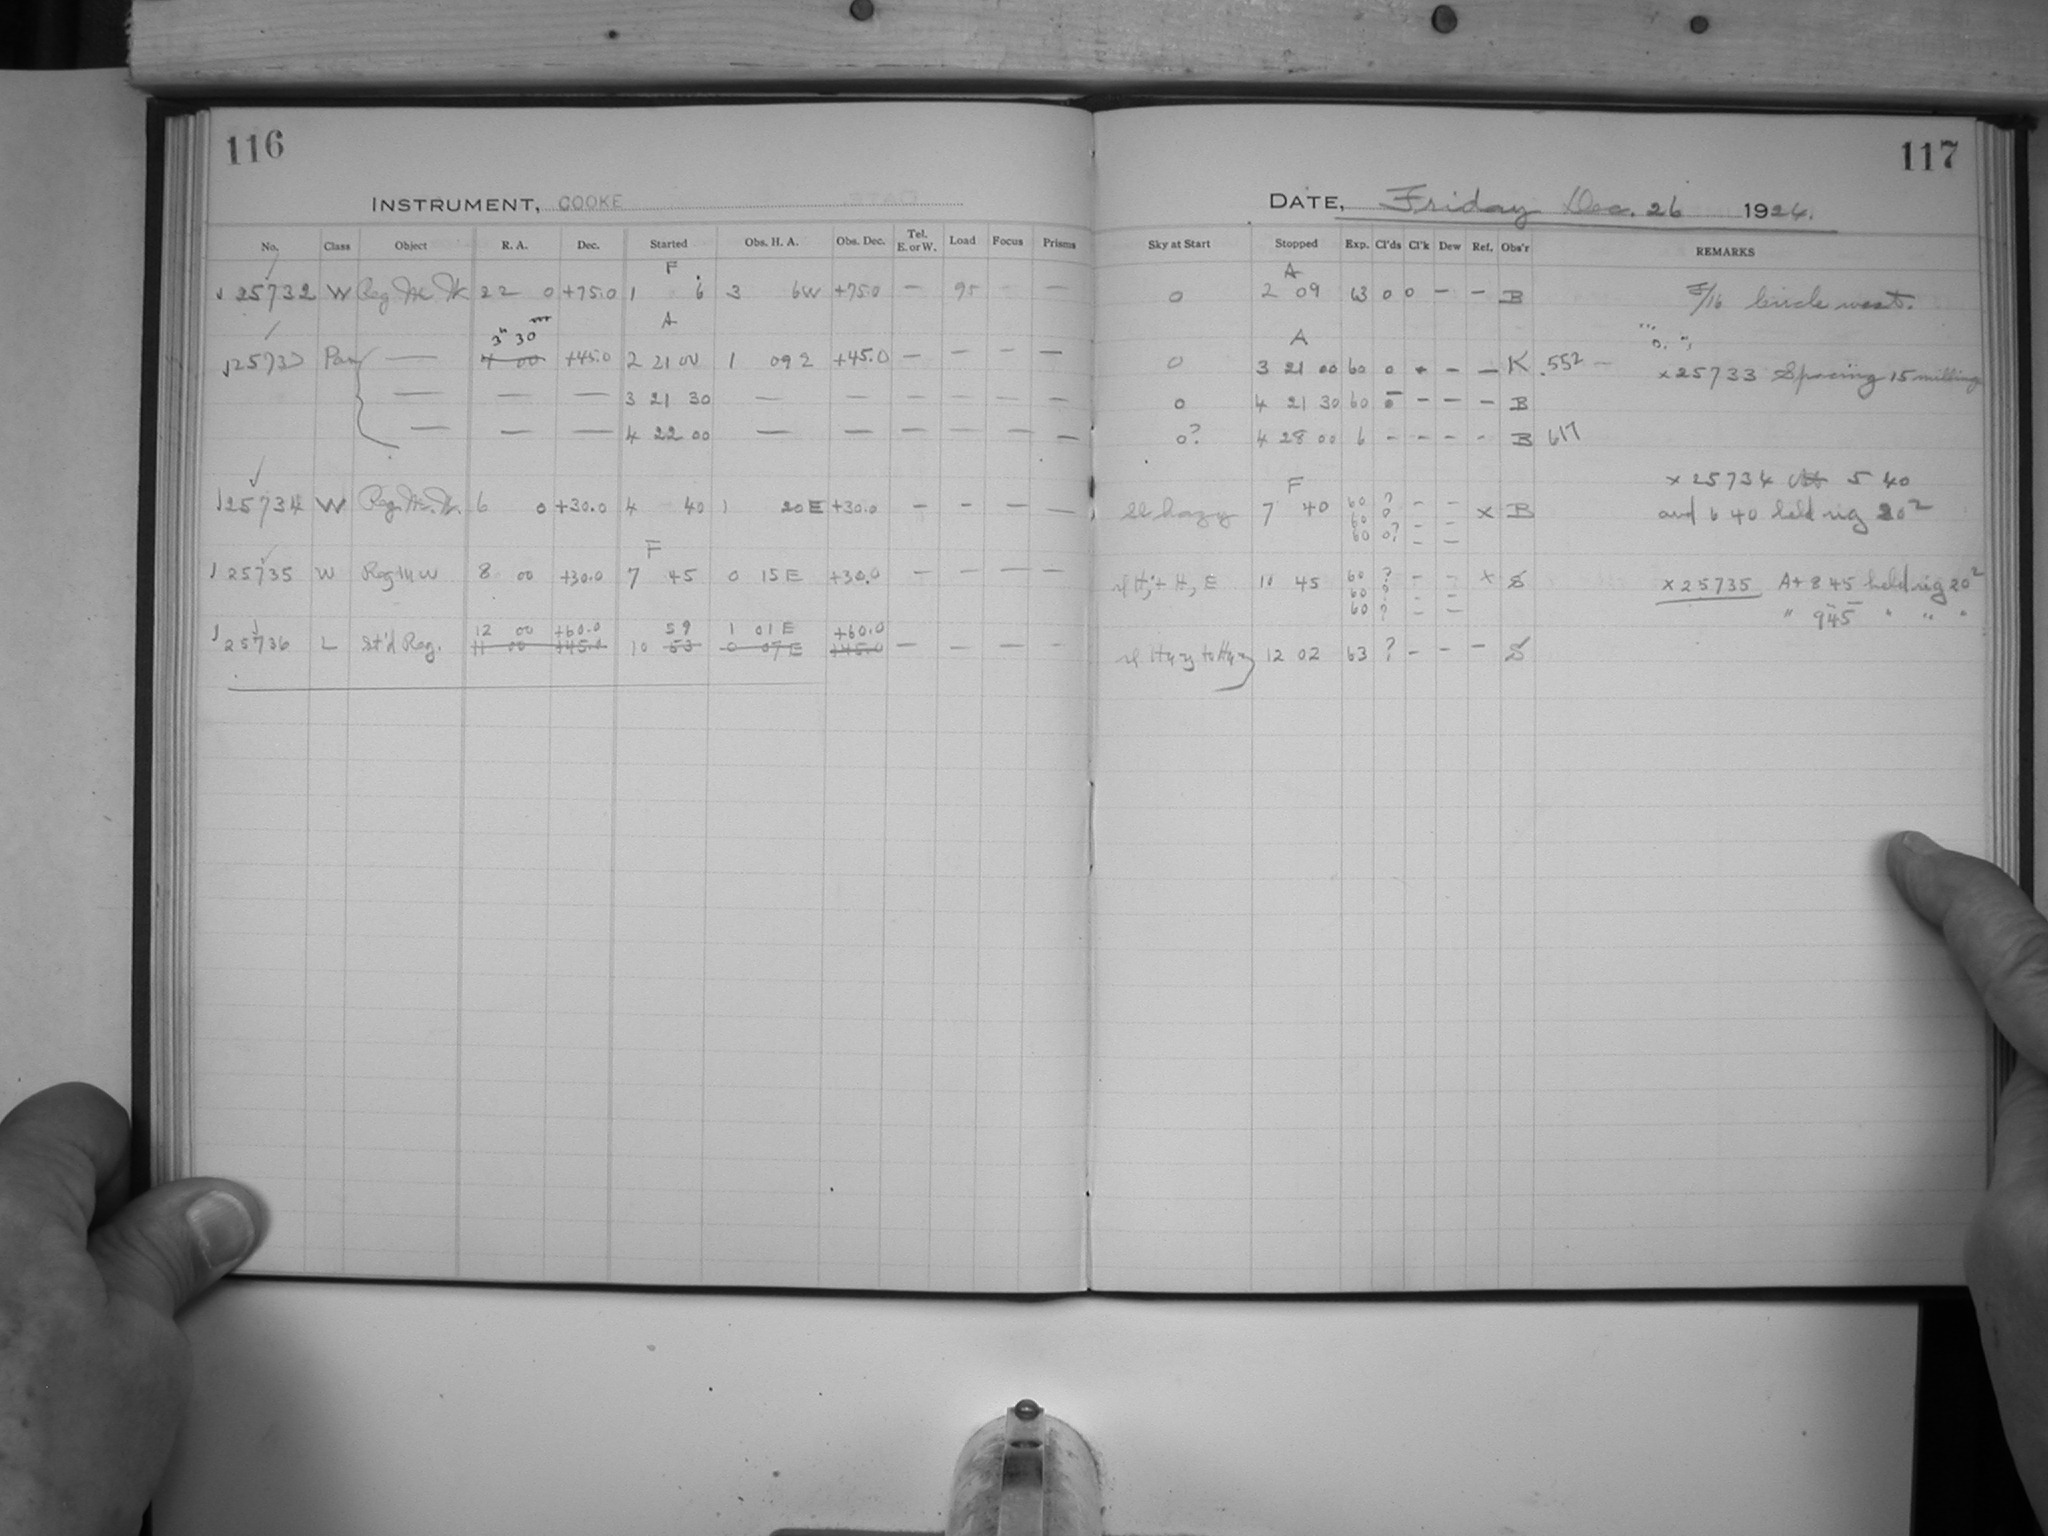 116
INSTRUMENT, COOKE
No. Class Object R. A. Dec. Started Obs. H. A. Obs. Dec. Tel. E. or W. Load Focus Prisms
F
25732 W Reg. M. W. 22 0 +75.0 1 6 3 6W +75.0 — 95 — —
3h 30m A
25733 Par — 4 00 +45.0 2 21 00 1 09 2 +45.0 — — — —
— — — 3 21 30 — — — — — —
— — — 4 22 00 — — — — — —
25734 W Reg. M. W. 6 0 +30.0 4 40 1 20 E +30.0 — — — —
F
25735 W Reg M W 8 00 +30.0 7 45 0 15 E +30.0 — — — —
12 00 +60.0 59 1 01 E +60.0
25736 L St'd Reg. 11 00 +45.0 10 53 0 07 E +45.0 — — — —
117
DATE, Friday Dec. 26 1924.
Sky at Start Stopped Exp. Cl'ds Cl'k Dew Ref. Obs'r REMARKS
A
0 2 09 63 0 0 — — B E/16 Circle west.
A
0 3 21 00 60 0 — — K .552 — x 25733 Spacing 15 millims
0 4 21 30 60 0 — — — B
0? 4 28 00 6 — — — — B 617
F x 25734 At 5 40
hazy 7 40 60 ? — — x B and 6 40 held rig 20²
60 0 — —
60 0? — —
10 45 60 ? — — x S x 25735 At 8 45 held rig 20²
60 ? — —
60 ? — — " 9 45 " " "
12 02 63 ? — — — S